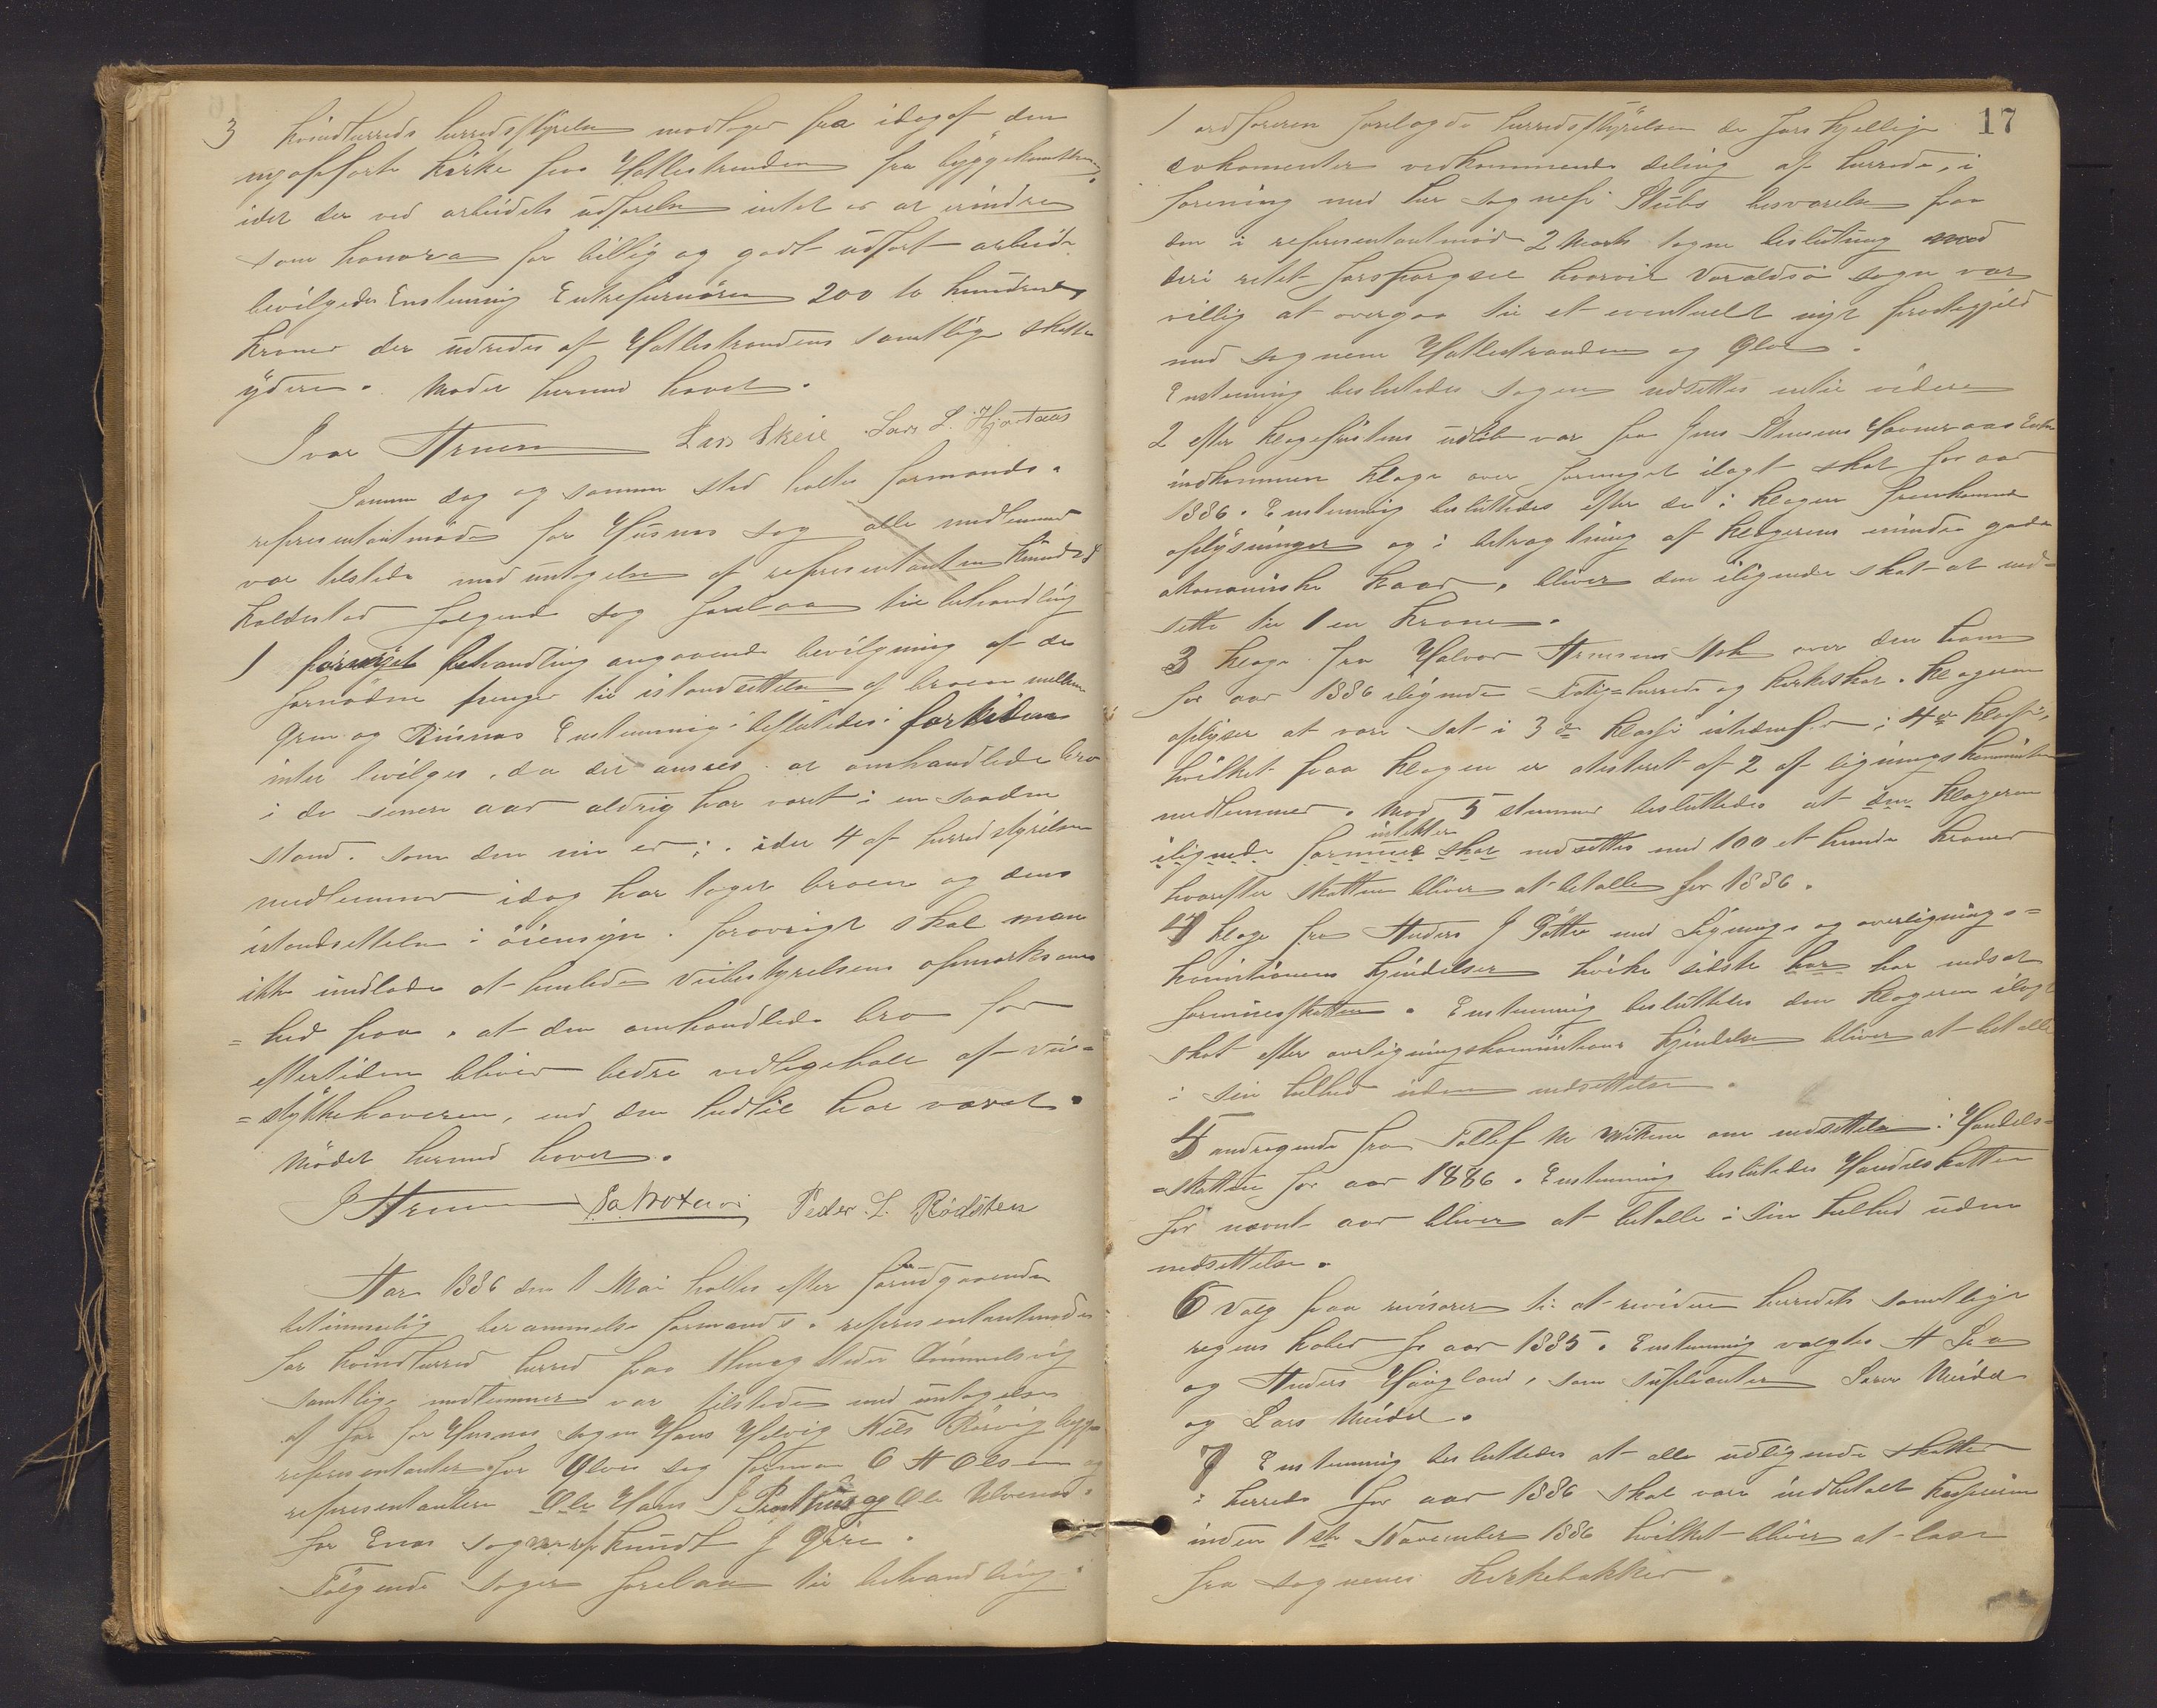 3 Kvindherreds herredsstyrelse modtager fra idag af den
nyopførte Kirke paa Hatlestranden fra byggekomiteen
idet der ved arbeidets udførelse intet er at erindre
som honorar for billig og godt udført arbeide
bevilgedes Enstemmig Entreprenøren 200 to hundrede
Kroner der udredes af Hatlestrandens samtlige skatte
ydere. Mødet hermed hævet.
Ivar Arnesen Lars Skeie Lars L. Hjortaas
Samme dag og samme sted holtes formands-
representantmøde for Husnes sog alle medlemmer
var tilstede med untagelse af representanten Knud
Holdestad følgende sag forelaa til behandling
1 fornyet behandling angaaende bevilgning af de
fornødne penger til istandsettelse af broen mellem
Grov og Riisnes Enstemmig beslutedes: for tiden
inter bevilges, da det ansees at omhandlede bro
i de senere aar aldrig har voret i en saadan
stand som den nu er; idet 4 af herredstyrelsens
medlemmer idag har taget broen og dens
istandsettelse i øiensyn. forøvrigt skal man
ikke undlade at henlede Veibestyrelsens opmerksom
=hed paa, at den omhandlede bro for
eftertiden bliver bedre vedligeholt af vei=
=stykkehaveren, end den hidtil har været.
Mødet hermed hævet.
I Arnesen Peder L. Rødsten
Aar 1886 den 1 Mai holtes efter forudgaaende
betimmelig berammelse formands- representantmøde
for Kvindherred herred paa skydsstedet Dimmelsvig
samtlige medlemmer var tilstede med untagelse
af for Husnes sogn Hans Helvig Nils Røsvig begge
representanter for Ølve sog forman O A Olsen og
representanten Ole Hans I og Ole Ulvenes
for Enes sogn rep Knudt J Øpre.
Følgende sager forelaa til behandling:
17
1 ordføreren forelagde herredsstyrelsen de forskjellige
dokumenter vedkommende deling af herredet, i
forening med her sognep Stubs besvarelse paa
den i representantmøde 2 Marts tagne beslutning med
deri rettet forspørgsel hvorvit Varaldsø sogn var
villig at overgaa til et eventuelt nyt prestegjeld
med sognene Hatlestranden og Ølve.
Enstemmig beslutedes sagen udsettes intil videre
2 efter klagefristens udløb var fra Jens Hansens Enke
indkommen klage over formeget ilagt skat for aar
1886. Enstemmig besluttedes efter de i klagen fremkomne
oplysninger og i betragtning af klagerens mindre gode
økonomiske kaar, bliver den ilignede skat at ned-
sette til 1 en krone.
3 Klage fra Halvor Arnesens Ask over den ham
for aar 1886 ilignede Fattig=herreds og Kirkeskat. Klageren
oplyser at vore sat i 3de Klasse istedenfor i 4de Klasse,
hvilket paa klagen er atesteret af 2 af ligningskommissionens
medlemmer. Mod 5 stemmer besluttedes at den klageren
ilignede formues skat indtekter nedsettes med 100 et hundre kroner
hvorefter skatten bliver at betalle for 1886.
4 Klage fra Anders J Pøtte med Lignings og overlignings=
komissionens kjendelser hvoraf sidste har har nedsat
formuesskatten. Enstemmig besluttedes den klageren ilagt
skat efter overligningskommissions kjendelse bliver at betalle
i sin helhed uden nedsettelse.
5 andragende fra Tollef M Vikene om nedsettelse i Handels=
=skatten for aar 1886. Enstemmig beslutedes Handelskatten
for nevnt aar bliver at betalle i sin helhed uden
nedsettelse.
6 Valg paa revisorer til at revidere herredets samtlige
regenskaber for aar 1885. Enstemmig valgtes A Lea
og Anders Haugland, som supleanter Søren Mæidel
og Lars Mæidel.
7 Enstemmig besluttedes at alle udlignede skatter
i herredet for aar 1886 skal vore indbetalt kasseren
inden 1ste November 1886 hvilket bliver at læse
fra sognenes kirkebakker.